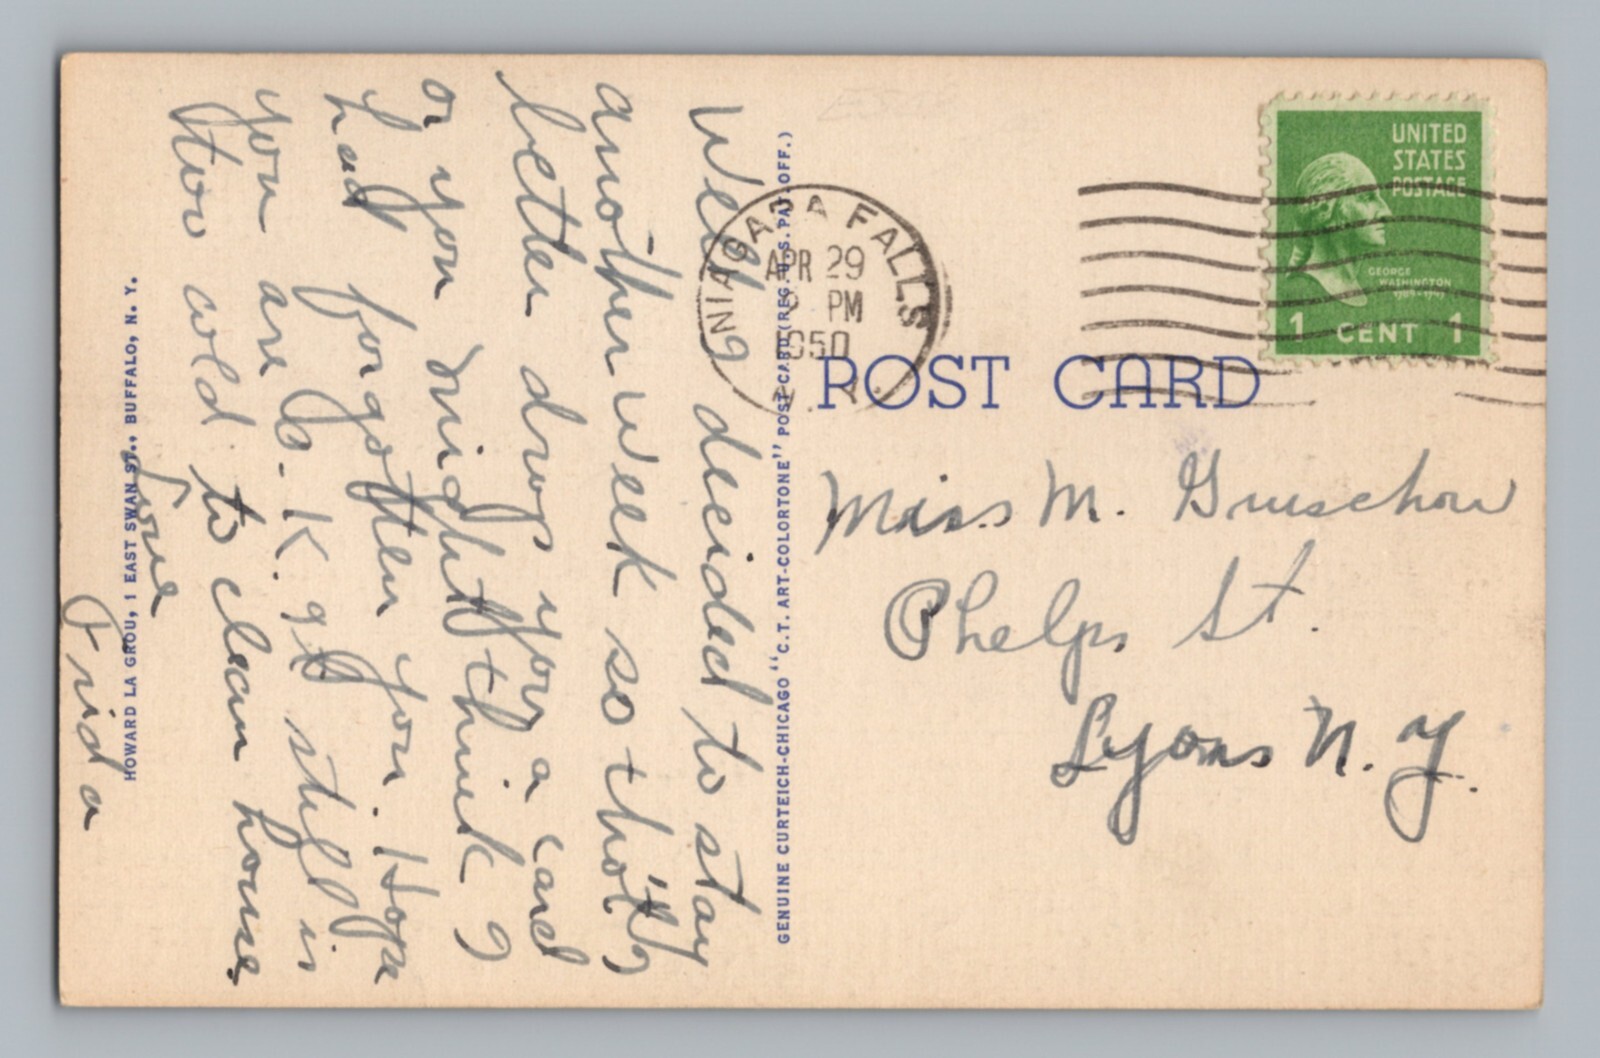 Well I decided to stay
another week so tho't I
better drop you a card
or you might think I
had forgotten you. Hope
you are O.K. It still is
too cold to clean house.
Love
Frida
HOWARD LA GROU, 1 EAST SWAN ST., BUFFALO, N. Y.
GENUINE CURTEICH-CHICAGO "C.T. ART-COLORTONE" POST CARD (REG. U.S. PAT. OFF.)
NIAGARA FALLS
APR 29
PM
1950
UNITED
STATES
POSTAGE
GEORGE
WASHINGTON
1 CENT 1
POST CARD
Miss M. Grueschow
Phelps St.
Lyons N. Y.